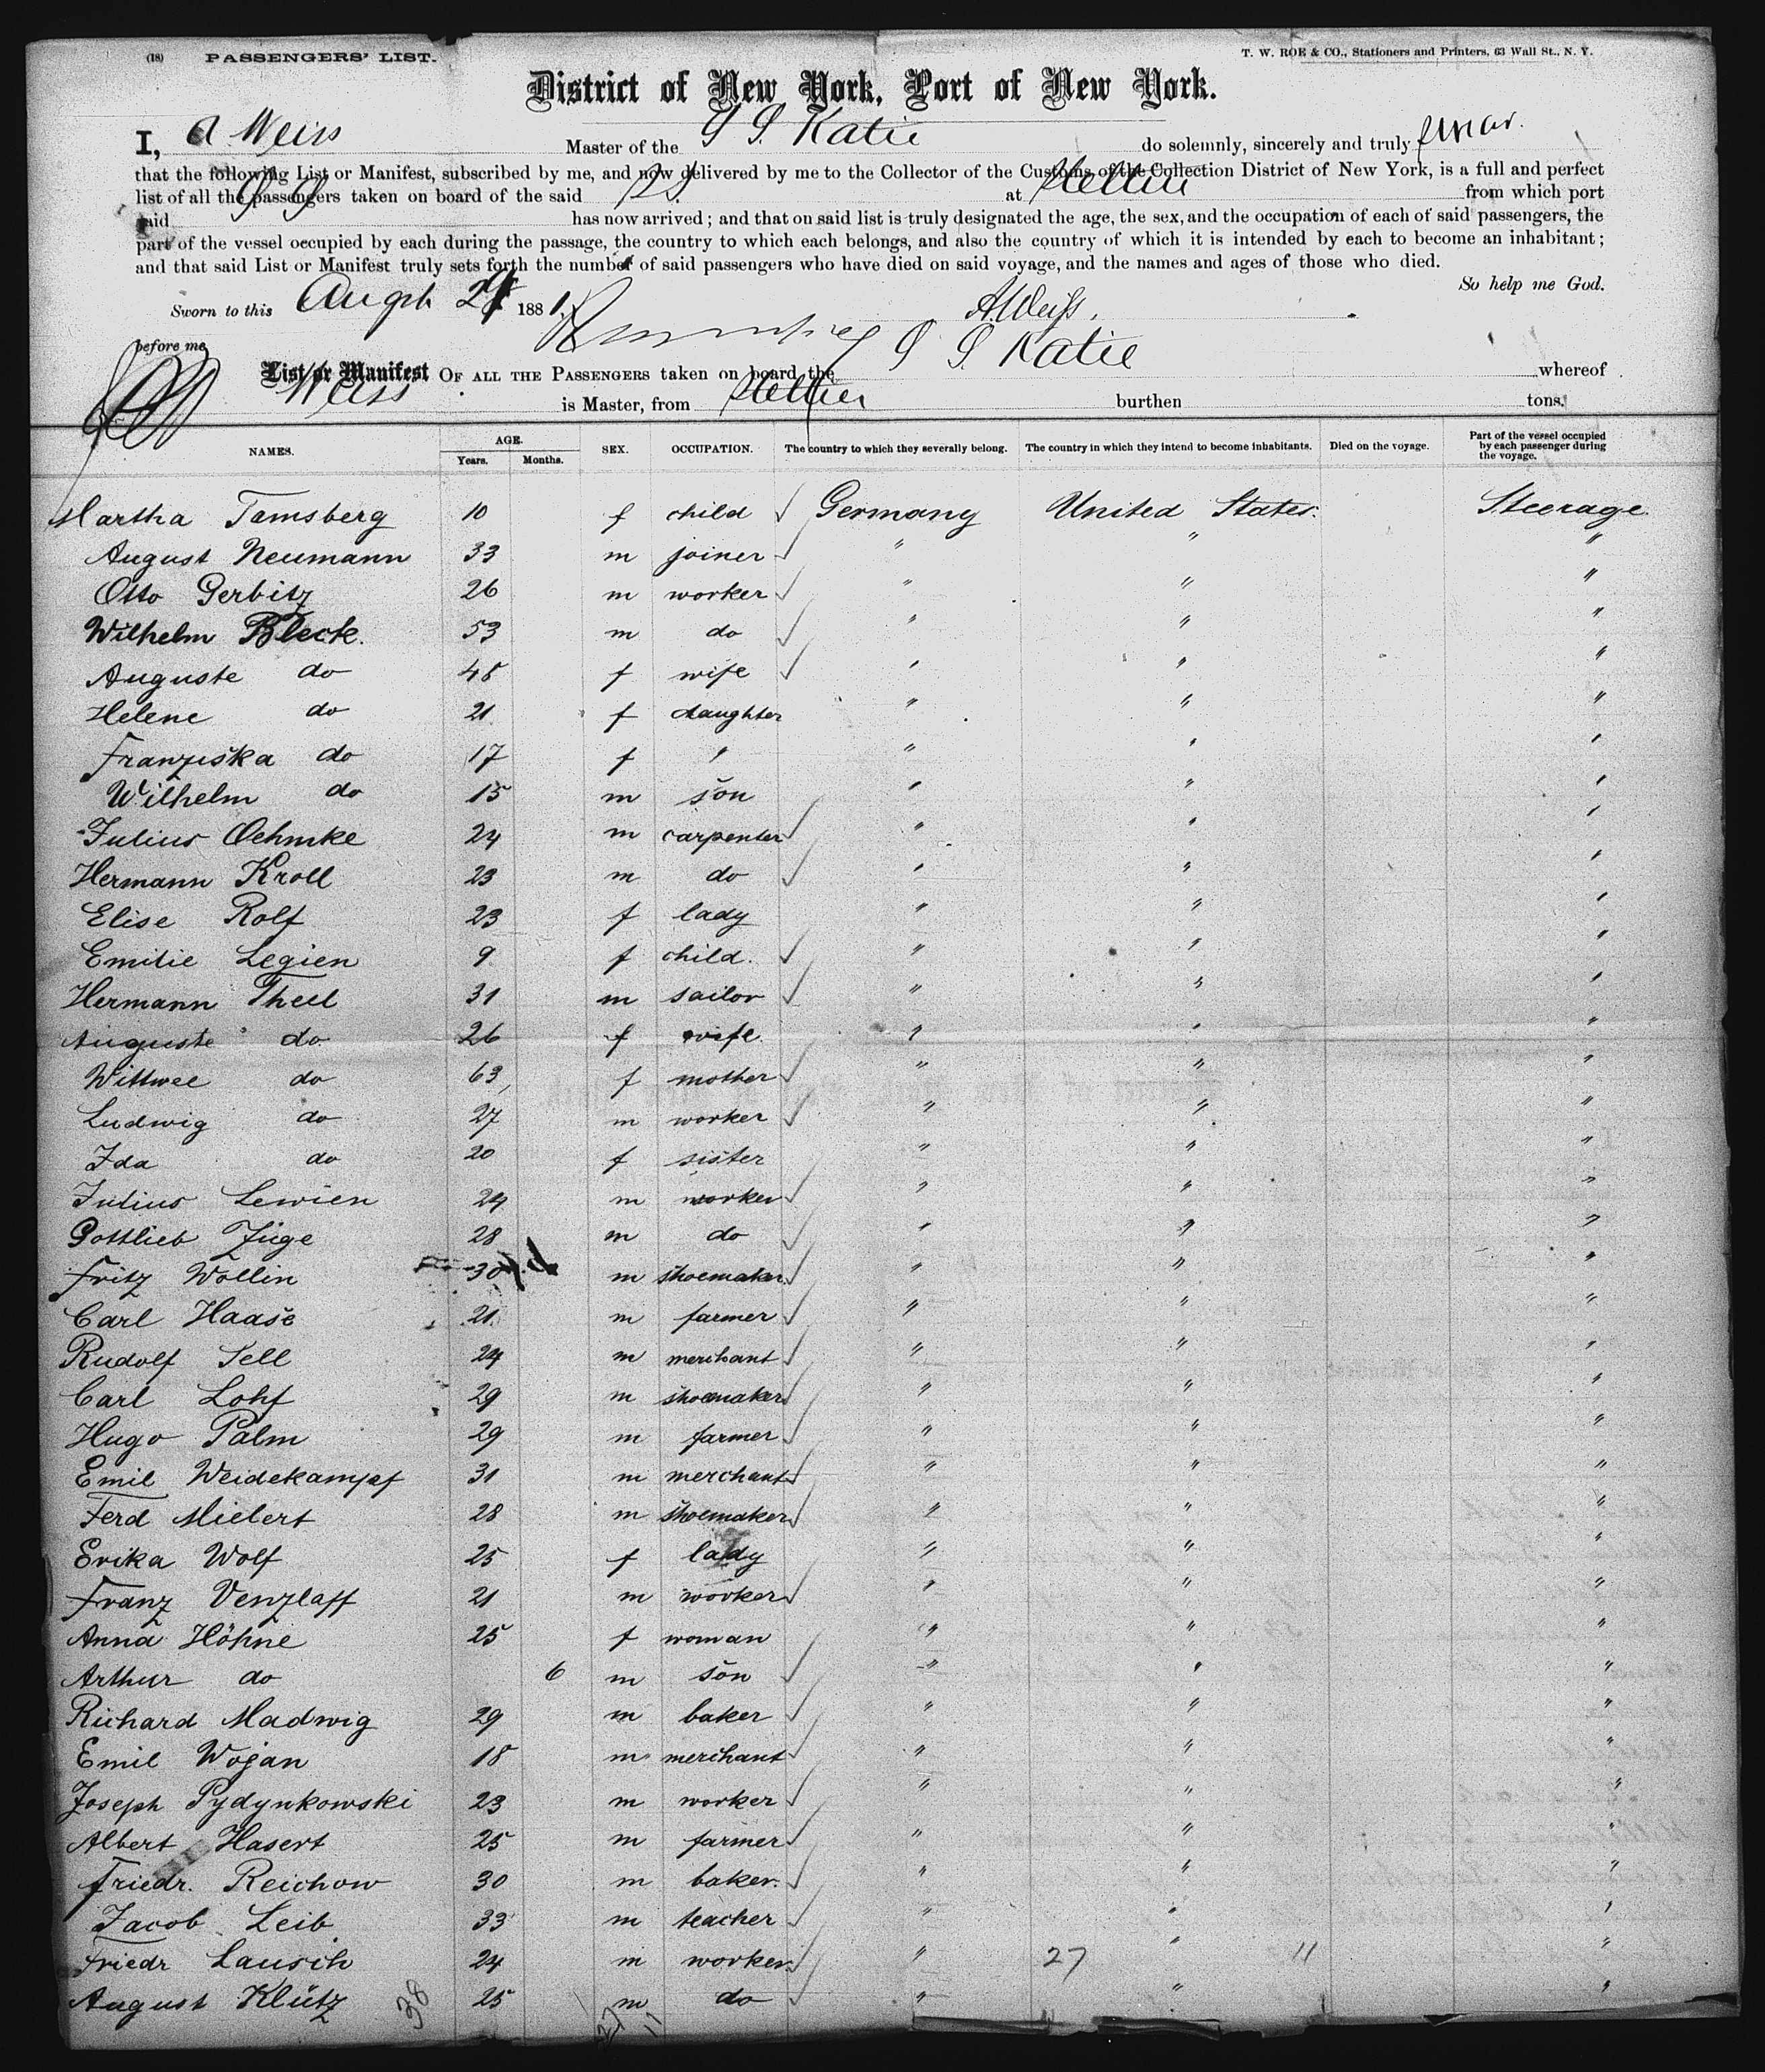 (18) PASSENGERS' LIST.
T. W. ROE & CO., Stationers and Printers, 63 Wall St., N. Y.
District of New York, Port of New York.
I, A Weiss Master of the S S Katie do solemnly, sincerely and truly swear
that the following List or Manifest, subscribed by me, and now delivered by me to the Collector of the Customs of the Collection District of New York, is a full and perfect
list of all the passengers taken on board of the said SS at Stettin from which port
said SS has now arrived; and that on said list is truly designated the age, the sex, and the occupation of each of said passengers, the
part of the vessel occupied by each during the passage, the country to which each belongs, and also the country of which it is intended by each to become an inhabitant;
and that said List or Manifest truly sets forth the number of said passengers who have died on said voyage, and the names and ages of those who died.
So help me God.
Sworn to this 188 1. A. Weiss.
before me
List or Manifest OF ALL THE PASSENGERS taken on board the S S Katie whereof
Weiss is Master, from Stettin burthen tons.
NAMES. AGE. Years. Months. SEX. OCCUPATION. The country to which they severally belong. The country in which they intend to become inhabitants. Died on the voyage. Part of the vessel occupied by each passenger during the voyage.
Martha Tamsberg 10 f child Germany United States. Steerage.
August Neumann 33 m joiner " " "
Otto Gerbitz 26 m worker " " "
Wilhelm Bleck. 53 m do " " "
Auguste do 48 f wife " " "
Helene do 21 f daughter " " "
Franziska do 17 f " " " "
Wilhelm do 15 m son " " "
Julius Oehmke 24 m carpenter " " "
Hermann Kroll 23 m do " " "
Elise Rolf 23 f lady " " "
Emilie Legien 9 f child. " " "
Hermann Theil 31 m sailor " " "
Auguste do 26 f wife " " "
Wittwe do 63 f mother " " "
Ludwig do 27 m worker " " "
Ida do 20 f sister " " "
Julius Lewien 24 m worker " " "
Gottlieb Züge 28 m do " " "
Fritz Wollin 30 m shoemaker " " "
Carl Haase 21 m farmer " " "
Rudolf Sell 24 m merchant " " "
Carl Lohf 29 m shoemaker " " "
Hugo Palm 29 m farmer " " "
Emil Weidekampf 31 m merchant " " "
Ferd Mielert 28 m shoemaker " " "
Erika Wolf 25 f lady " " "
Franz Venzlaff 21 m worker " " "
Anna Höhne 25 f woman " " "
Arthur do 6 m son " " "
Richard Madwig 29 m baker " " "
Emil Wojan 18 m merchant " " "
Joseph Pydynkowski 23 m worker " " "
Albert Hasert 25 m farmer " " "
Friedr. Reichow 30 m baker. " " "
Jacob Leib 33 m teacher " " "
Friedr Lausch 24 m worker " 27 " 11 "
August Klütz 38 25 m do " " "
27 11